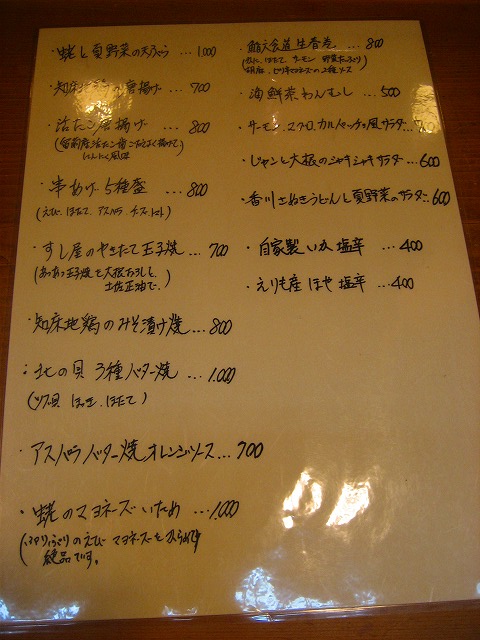 ・蛯と夏野菜の天ぷら … 1,000
・知床 の唐揚げ … 700
・活たこ唐揚げ … 800
にんにく風味
・串あげ 5種盛 … 800
(えび、ほたて、アスパラ、チーズ、トマト)
・すし屋のやきたて玉子焼 … 700
(あつあつ玉子焼を大根おろしと、
土佐正油で。)
・知床地鶏のみそ漬け焼 … 800
・北の貝 3種バター焼 … 1,000
(ツブ貝 ほっき ほたて)
・アスパラバター焼 オレンジソース … 700
・蛯のマヨネーズいため … 1,000
(プリプリのえび マヨネーズを からめて
絶品です。)
・鮨天食道 生春巻 … 800
ほたて サーモン 野菜たっぷり
2種ソース)
・海鮮茶わんむし … 500
・サーモン、マグロ カルパッチョ風サラダ…
・じゃこと大根のシャキシャキサラダ … 600
・香川さぬきうどんと夏野菜のサラダ … 600
・自家製いか塩辛 … 400
・えりも産 ほや塩辛 … 400